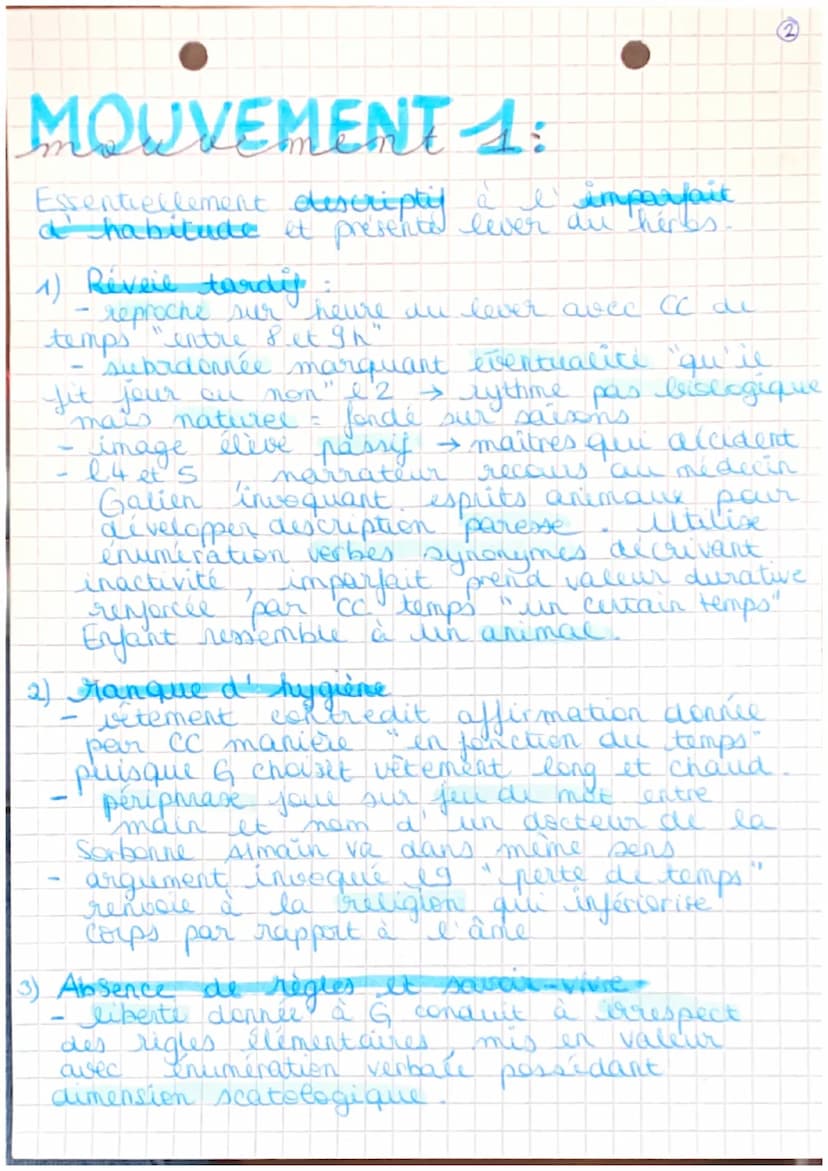 2
MOUVEMENT 1:
mouvement
Essentiellement descriptif à l'imparfait
d'habitude et présente lever du héros.
1) Réveil tardif :
- reproche sur heure du lever avec CC de
temps "entre 8 et 9h"
- subrdonnée marquant éventualité "qu'il
fit jour ou non" l2 → rythme pas biologique
mais naturel = fondé sur saisons
- image élève passif → maîtres qui décident
- l4 et 5, narrateur recours au médecin
Galien invoquant esprits animaux pour
développer description paresse. Utilise
énumération verbes synonymes décrivant
inactivité, imparfait prend valeur durative
renforcée par CC temps "un certain temps"
Enfant ressemble à un animal.
2) Manque d'hygiène
- vêtement contredit affirmation donnée
par CC manière "en fonction du temps"
puisque G choisit vêtement long et chaud.
- périphrase joue sur jeu de mot entre
main et nom d'un docteur de la
Sorbonne Almain va dans même sens
- argument invoqué l9 "perte de temps"
renvoie à la religion qui infériorise
corps par rapport à l'âme
3) Absence de règles et savoir-vivre
- liberté donnée à G conduit à irrespect
des règles élémentaires, mis en valeur
avec énumération verbale possédant
dimension scatologique.